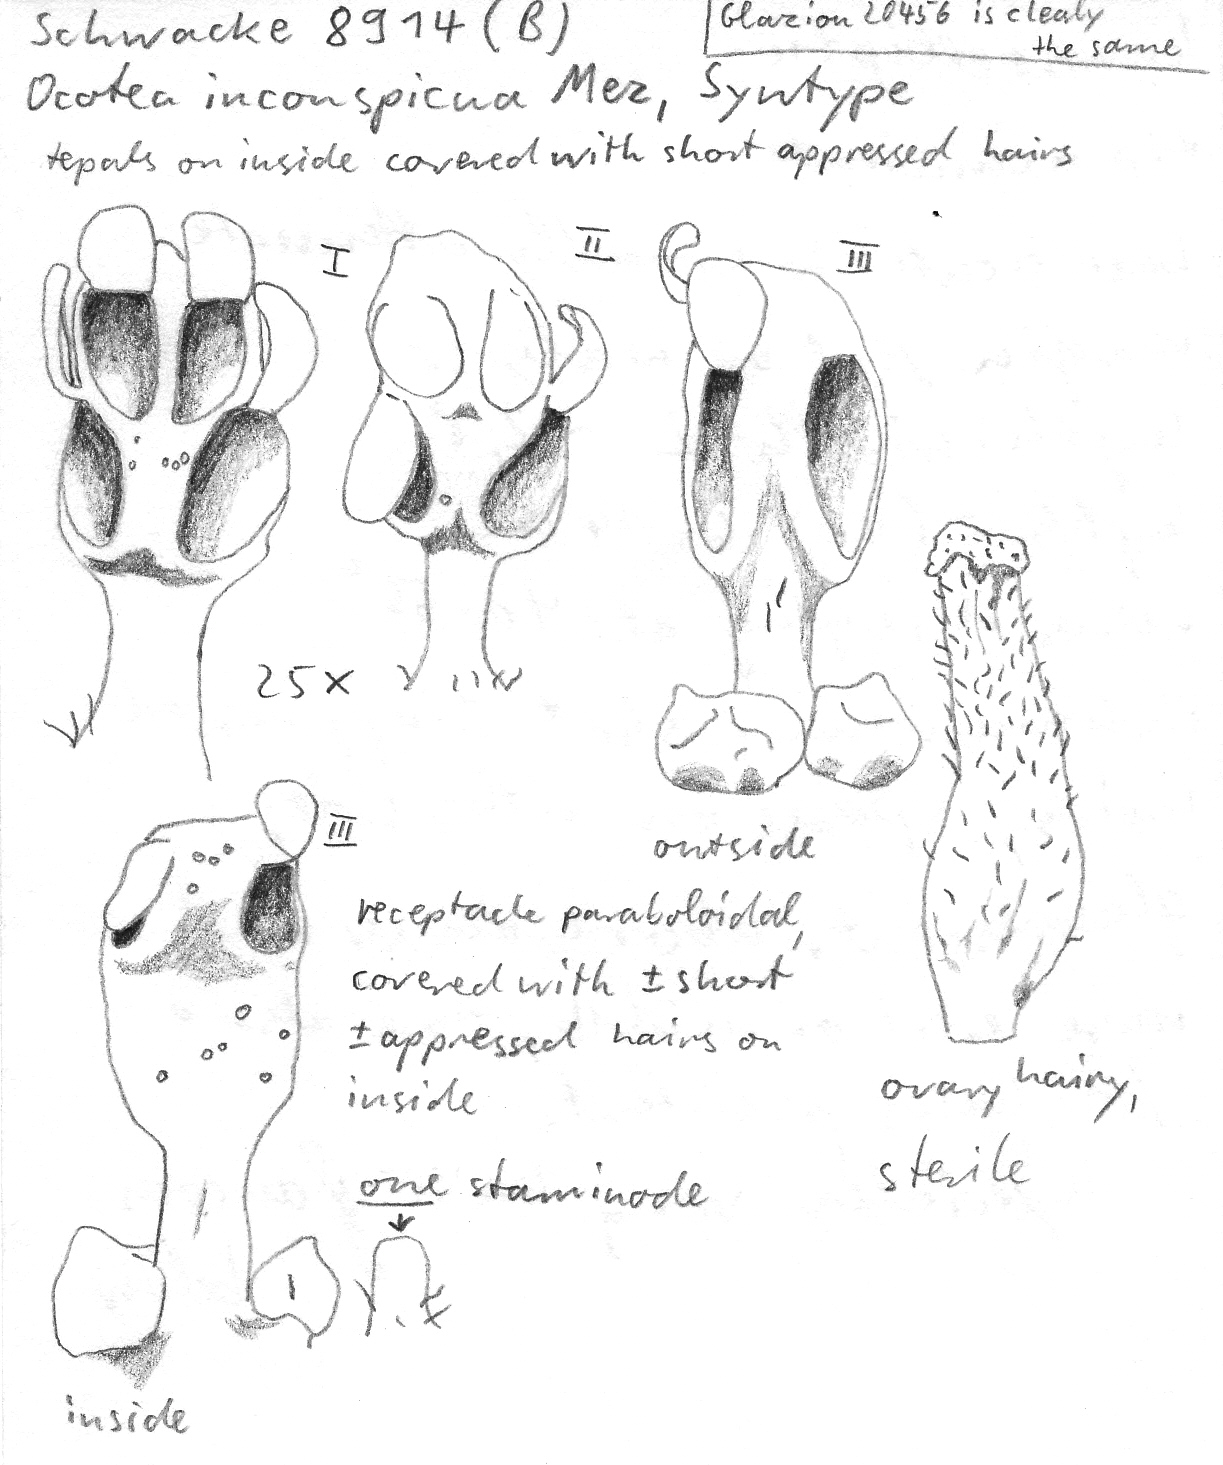 Schwacke 8914 (B)
Glazion 20456 is clealy
the same
Ocotea inconspicua Mez, Syntype
tepals on inside covered with short appressed hairs
I
II
III
25x
III
outside
receptacle paraboloidal,
covered with ± short
± appressed hairs on
inside
ovary hairy,
sterile
one staminode
inside